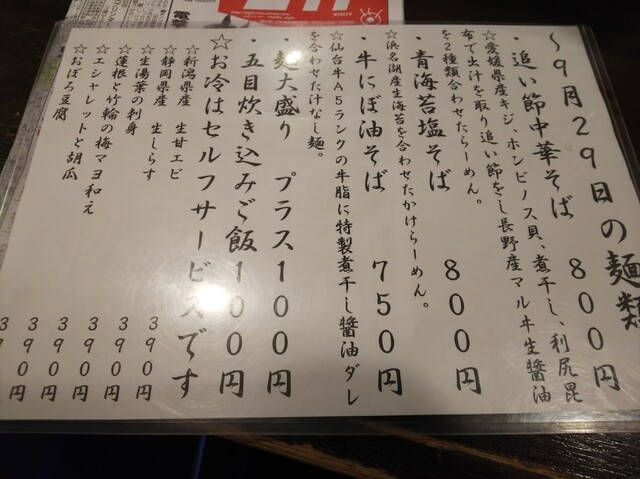 ～９月２９日の麺類
・追い節中華そば　８００円
☆愛媛県産キジ、ホンビノス貝、煮干し、利尻昆
布で出汁を取り追い節をし長野産マルヰ生醤油
を２種類合わせたらーめん。
・青海苔塩そば　８００円
☆浜名湖産生海苔を合わせたかけらーめん。
・牛にぼ油そば　７５０円
☆仙台牛Ａ５ランクの牛脂に特製煮干し醤油ダレ
を合わせた汁なし麺。
・麺大盛り　プラス１００円
・五目炊き込みご飯１００円
☆お冷はセルフサービスです
☆新潟県産　生甘エビ　３９０円
☆静岡県産　生しらす　３９０円
☆生湯葉の刺身　３９０円
☆蓮根と竹輪の梅マヨ和え　３９０円
☆エシャレットと胡瓜　３９０円
☆おぼろ豆腐　３９０円